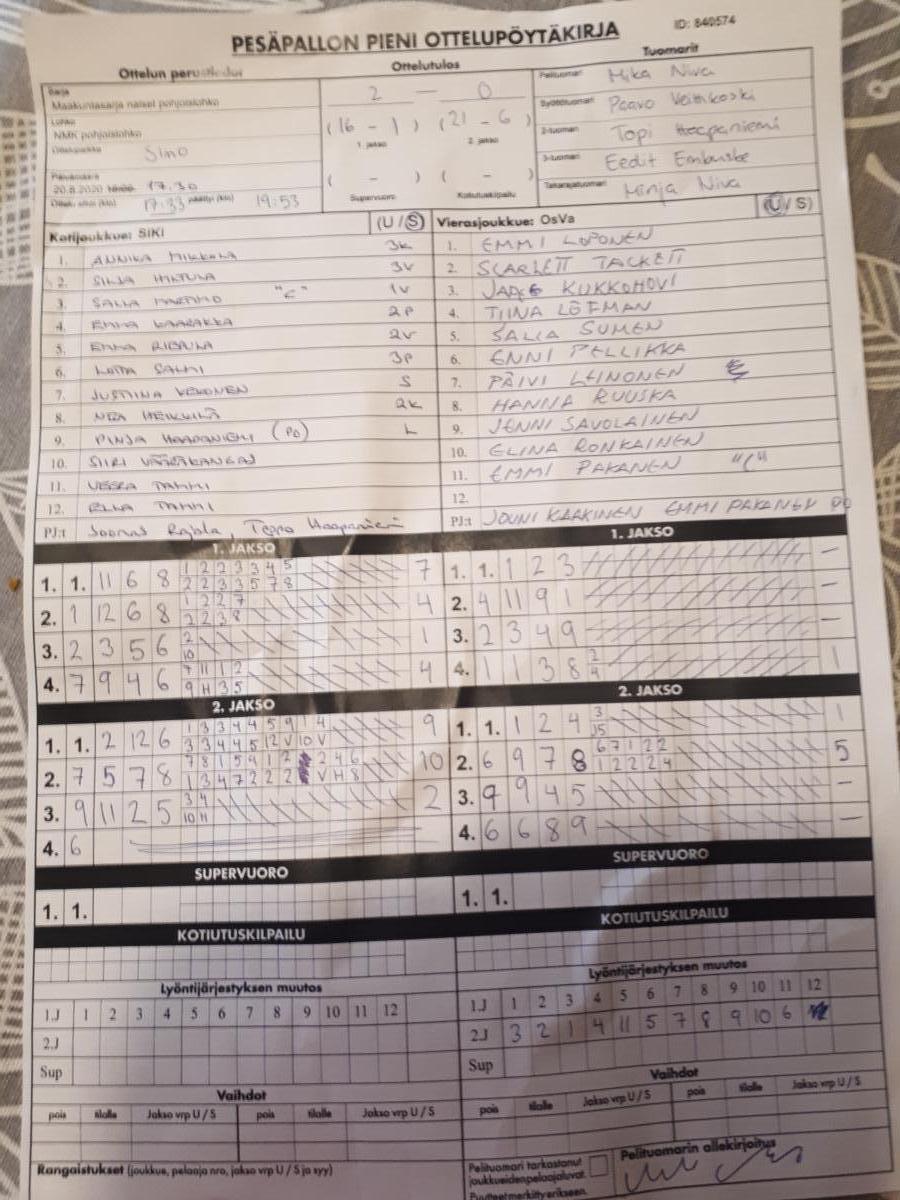 ID: 840574
PESÄPALLON PIENI OTTELUPÖYTÄKIRJA
Ottelun perustiedot
Ottelutulos
Tuomarit
Sarja
Maakuntasarja naiset pohjoislohko
Lohko
NMK pohjoislohko
Ottelupaikka Simo
Päivämäärä
20.8.2020 17.30
Ottelu alkoi (klo) 17:33 päättyi (klo) 19:53
2 - 0
(16 - 1) (21 - 6)
1. jakso 2. jakso
( - ) ( - )
Supervuoro Kotiutuskilpailu
Pelituomari Mika Niva
Syöttötuomari Paavo Veitikoski
2-tuomari Topi Haapaniemi
3-tuomari Eedit Embuske
Takarajatuomari Minja Niva
Kotijoukkue: SiKi (U/S)
1. ANNIKA MIKKOLA 3K
2. SILJA HILTULA 3V
3. SALLA "C" 1V
4. EMMA KAARAKKA 2P
5. EMMA 2V
6. LOTTA SALMI 3P
7. JUSTIINA S
8. NEA HEIKKILÄ 2K
9. PINJA HAAPANIEMI (PO) L
10. SIIRI VÄÄRÄKANGAS
11. VEERA TAMMI
12. ELLA TAMMI
PJ:t Joonas Rajala, Teppo Haapaniemi
Vierasjoukkue: OsVa (U/S)
1. EMMI LOPONEN
2. SCARLETT TACKETT
3. KUKKOHOVI
4. TIINA LÖFMAN
5. SALLA SUMEN
6. ENNI PELLIKKA
7. PÄIVI LEINONEN
8. HANNA RUUSKA
9. JENNI SAVOLAINEN
10. ELINA RONKAINEN
11. EMMI PAKANEN "C"
12.
PJ:t JOUNI KAAKINEN EMMI PAKANEN PO
1. JAKSO
1. 1. 11 6 8 1 2 2 3 3 4 5 7
2 2 3 3 5 7 8
2. 1 12 6 8 1 2 2 7 4
2 2 3 8
3. 2 3 5 6 2 1
10
4. 7 9 4 6 7 11 1 2 4
9 H 3 5
1. JAKSO
1. 1. 1 2 3 -
2. 4 11 9 1 -
3. 2 3 4 9
4. 1 1 3 8 2 1
4
2. JAKSO
1. 1. 2 12 6 1 3 3 4 4 5 9 1 4 9
3 3 4 4 5 12 V 10 V
2. 7 5 7 8 7 8 1 5 9 1 2 2 4 6 10
1 3 4 7 2 2 2 V H 8
3. 9 11 2 5 3 4 2
10 11
4. 6
2. JAKSO
1. 1. 1 2 4 3 1
J5
2. 6 9 7 8 6 7 1 2 2 5
1 2 2 2 4
3. 9 9 4 5 -
4. 6 6 8 9 -
SUPERVUORO
1. 1.
SUPERVUORO
1. 1.
KOTIUTUSKILPAILU
KOTIUTUSKILPAILU
Lyöntijärjestyksen muutos
1.J 1 2 3 4 5 6 7 8 9 10 11 12
2.J
Sup
Lyöntijärjestyksen muutos
1.J 1 2 3 4 5 6 7 8 9 10 11 12
2.J 3 2 1 4 11 5 7 8 9 10 6
Sup
Vaihdot
pois tilalle Jakso vrp U / S pois tilalle Jakso vrp U / S
Vaihdot
pois tilalle Jakso vrp U / S pois tilalle Jakso vrp U / S
Rangaistukset (joukkue, pelaaja nro, jakso vrp U / S ja syy)
Pelituomari tarkastanut
joukkueiden pelaajaluvat.
Puutteet merkitty erikseen.
Pelituomarin allekirjoitus